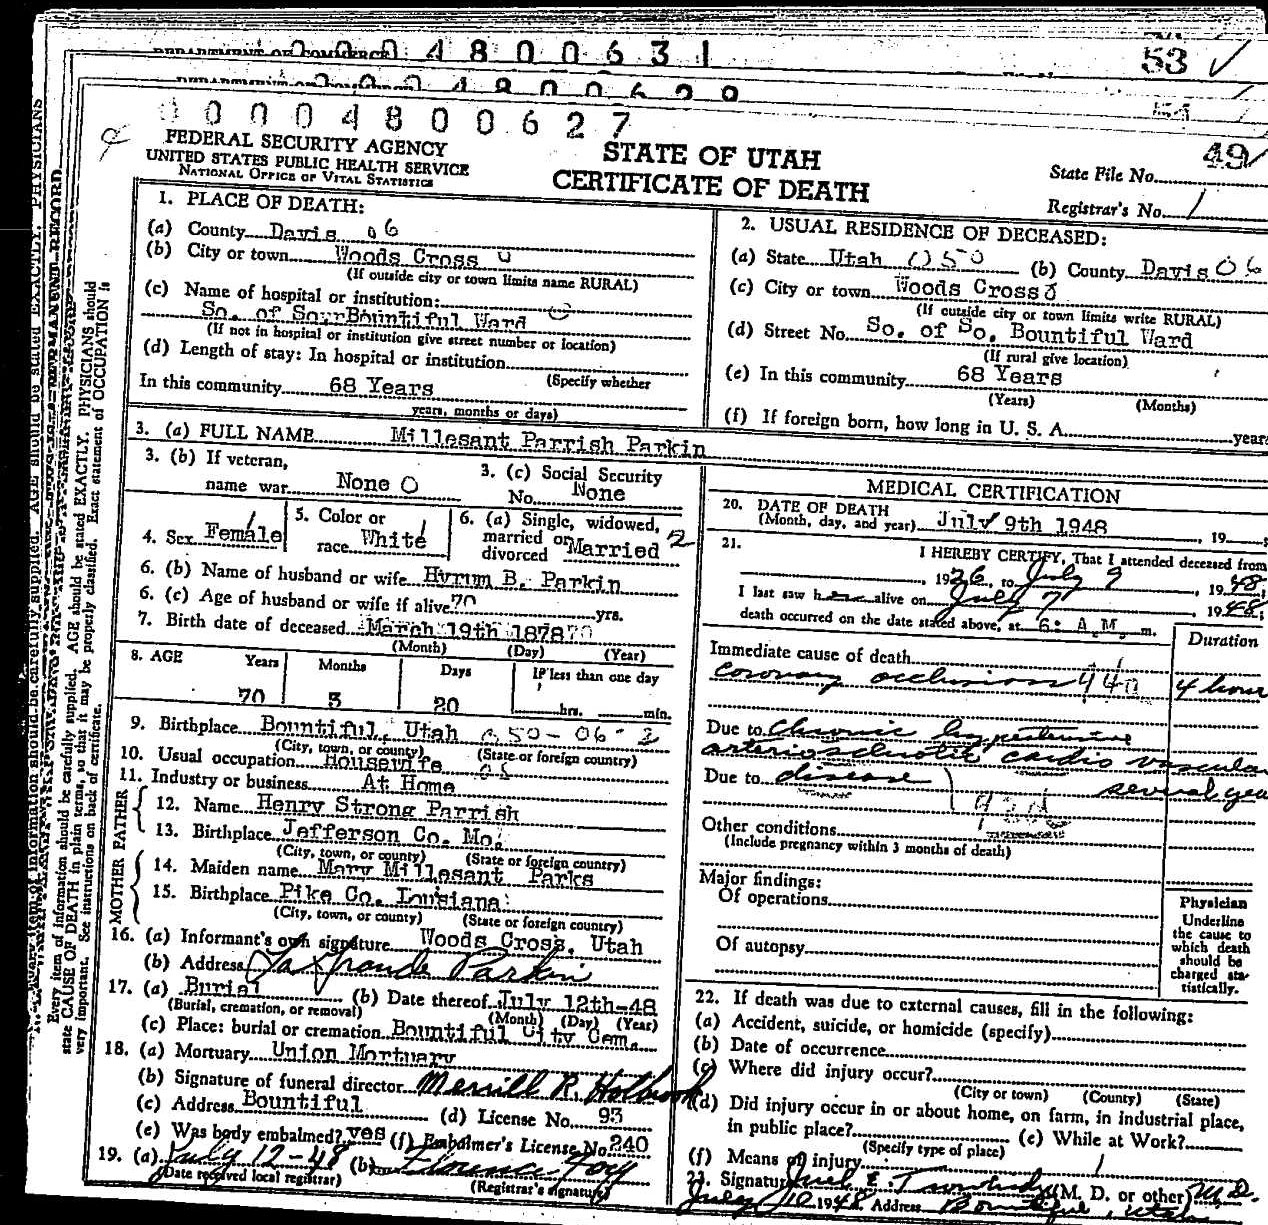 DEPARTMENT OF COMMERCE 0 0 0 4 8 0 0 6 3 1
53 ✓
0 0 0 4 8 0 0 6 2 9
0 0 0 0 4 8 0 0 6 2 7
49 ✓
FEDERAL SECURITY AGENCY
UNITED STATES PUBLIC HEALTH SERVICE
NATIONAL OFFICE OF VITAL STATISTICS
STATE OF UTAH
CERTIFICATE OF DEATH
State File No.
Registrar's No. 1
Every item of information should be carefully supplied. AGE should be stated EXACTLY. PHYSICIANS should
state CAUSE OF DEATH in plain terms, so that it may be properly classified. Exact statement of OCCUPATION is
very important. See instructions on back of certificate.
1. PLACE OF DEATH:
(a) County Davis 06
(b) City or town Woods Cross 0
(If outside city or town limits name RURAL)
(c) Name of hospital or institution:
So. of Bountiful Ward
(If not in hospital or institution give street number or location)
(d) Length of stay: In hospital or institution
(Specify whether
In this community 68 Years
years, months or days)
2. USUAL RESIDENCE OF DECEASED:
(a) State Utah 050 (b) County Davis 06
(c) City or town Woods Cross
(If outside city or town limits write RURAL)
(d) Street No. So. of So. Bountiful Ward
(If rural give location)
(e) In this community 68 Years
(Years) (Months)
(f) If foreign born, how long in U. S. A. years
3. (a) FULL NAME Millesant Parrish Parkin
3. (b) If veteran,
name war None 0
3. (c) Social Security
No. None
4. Sex Female 1
5. Color or
race White 1
6. (a) Single, widowed,
married or
divorced Married 2
6. (b) Name of husband or wife Hyrum B. Parkin
6. (c) Age of husband or wife if alive 70 yrs.
7. Birth date of deceased March 19th 1878 70
(Month) (Day) (Year)
8. AGE Years Months Days If less than one day
70 3 20 hrs. min.
9. Birthplace Bountiful, Utah 050-06-2
(City, town, or county) (State or foreign country)
10. Usual occupation Housewife
11. Industry or business At Home
FATHER
12. Name Henry Strong Parrish
13. Birthplace Jefferson Co. Mo.
(City, town, or county) (State or foreign country)
MOTHER
14. Maiden name Mary Millesant Parks
15. Birthplace Pike Co. Louisiana
(City, town, or county) (State or foreign country)
16. (a) Informant's own signature Woods Cross, Utah
(b) Address LaGrande Parkin
17. (a) Burial (b) Date thereof July 12th-48
(Burial, cremation, or removal) (Month) (Day) (Year)
(c) Place: burial or cremation Bountiful City Cem.
18. (a) Mortuary Union Mortuary
(b) Signature of funeral director Merrill R. Holbrook
(c) Address Bountiful (d) License No. 93
(e) Was body embalmed? yes (f) Embalmer's License No. 240
19. (a) July 12-48 (b) Florence Foy
(Date received local registrar) (Registrar's signature)
MEDICAL CERTIFICATION
20. DATE OF DEATH
(Month, day, and year) July 9th 1948, 19
21. I HEREBY CERTIFY, That I attended deceased from
, 1936, to July 9, 1948;
I last saw her alive on July 7, 1948;
death occurred on the date stated above, at 6: A.M. m.
Duration
Immediate cause of death
coronary occlusion 94a 4 hour
Due to Chronic hypertensive
arteriosclerotic cardio vascular
Due to disease several yea
93d
Other conditions
(Include pregnancy within 3 months of death)
Major findings:
Of operations
Of autopsy
Physician
Underline
the cause to
which death
should be
charged sta-
tistically.
22. If death was due to external causes, fill in the following:
(a) Accident, suicide, or homicide (specify)
(b) Date of occurrence
(c) Where did injury occur?
(City or town) (County) (State)
(d) Did injury occur in or about home, on farm, in industrial place,
in public place? (e) While at Work?
(Specify type of place)
(f) Means of injury
23. Signature (M. D. or other) M.D.
July 10 1948 Address Bountiful, Utah